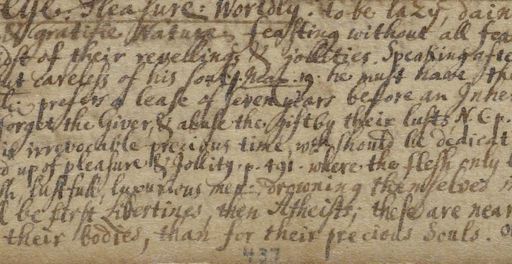 Life. Pleasure. Worldly. To be lazy, dain
gratifie Nature, feasting without all fea
dst of their revellings & jollities. Speaking afte
ut careless of his soul, he must have the
prefers a lease of seven years before an Inhe
forget the Giver, & abuse the gift by their lusts N.C. p.
is irrevocable precious time, wch should be dedicat
d up of pleasure & Jollity. p. 491. where the flesh only
lustfull, luxurious men. drowning themselves
l be first Libertines, then Atheists; these are near
their bodies, than for their precious souls.
437